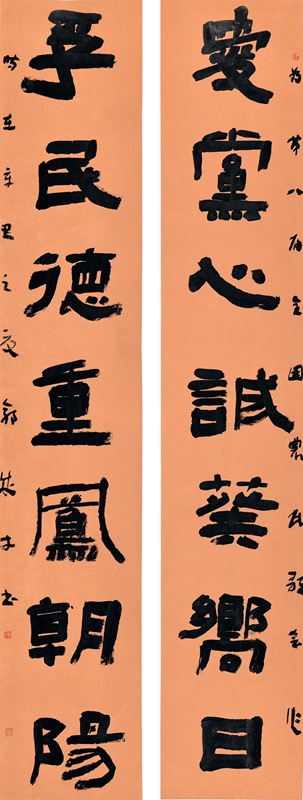 為第八屆全國農民歌會作
愛黨心誠葵嚮日
孚民德重鳳朝陽
時在辛丑之夏郭書